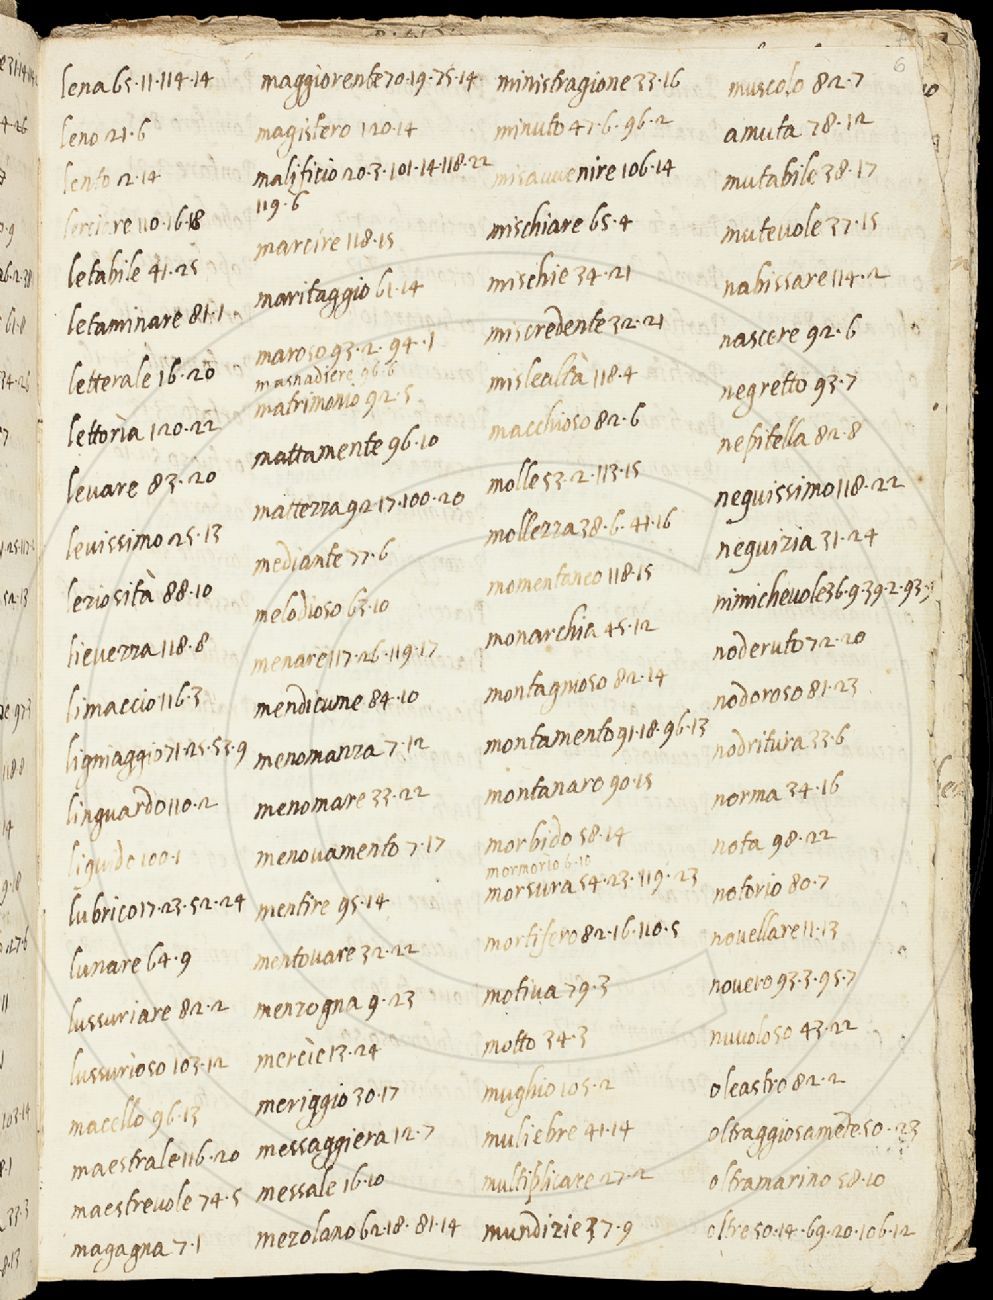 6
lena 65·11·114·14
leno 21·6
lento 2·14
lerciere 110·16·18
letabile 41·25
letaminare 81·1
letterale 16·20
lettorìa 120·22
leuare 83·20
leuissimo 25·13
leziosità 88·10
lieuezza 118·8
limaccio 116·3
ligniaggio 71·25·53·9
linguardo 110·2
liquido 100·1
lubrico 17·23·52·24
lunare 64·9
lussuriare 82·2
lussurioso 103·12
macello 96·13
maestrale 116·20
maestreuole 74·5
magagna 7·1
maggiorente 70·19·75·14
magistero 120·14
malificio 20·3·101·14·118·22
119·6
marcire 118·15
maritaggio 61·14
maroso 93·2·94·1
masnadiere 96·6
matrimonio 92·5
mattamente 96·10
mattezza 92·17·100·20
mediante 77·6
melodioso 63·10
menare 117·26·119·17
mendicume 84·10
menomanza 7·12
menomare 33·22
menouamento 7·17
mentire 95·14
mentouare 32·22
menzogna 9·23
mercìe 13·24
meriggio 30·17
messaggiera 12·7
messale 16·10
mezolano 62·18·81·14
ministragione 33·16
minuto 47·6·96·2
misauuenire 106·14
mischiare 65·4
mischie 34·21
miscredente 32·21
mislealtà 118·4
macchioso 82·6
molle 53·2·113·15
mollezza 38·6·41·16
momentaneo 118·15
monarchia 45·12
montagnoso 82·14
montamento 91·18·96·13
montanaro 90·15
morbido 58·14
mormorio 6·10
morsura 54·23·119·23
mortifero 82·16·110·5
motiua 79·3
motto 34·3
mughio 105·2
muliebre 41·14
multiplicare 27·2
mundizie 37·9
muscolo 82·7
amuta 78·12
mutabile 38·17
muteuole 37·15
nabissare 114·2
nascere 92·6
negretto 93·7
nepitella 82·8
neguissimo 118·22
neguizia 31·24
nimicheuole 36·9·39·2·93·5
noderuto 72·20
nodoroso 81·23
nodritura 33·6
norma 34·16
nota 98·22
notorio 80·7
nouellare 11·13
nouero 93·3·95·7
nuuoloso 43·22
oleastro 82·2
oltraggiosamēte 50·23
oltramarino 58·10
oltre 50·14·69·20·106·12